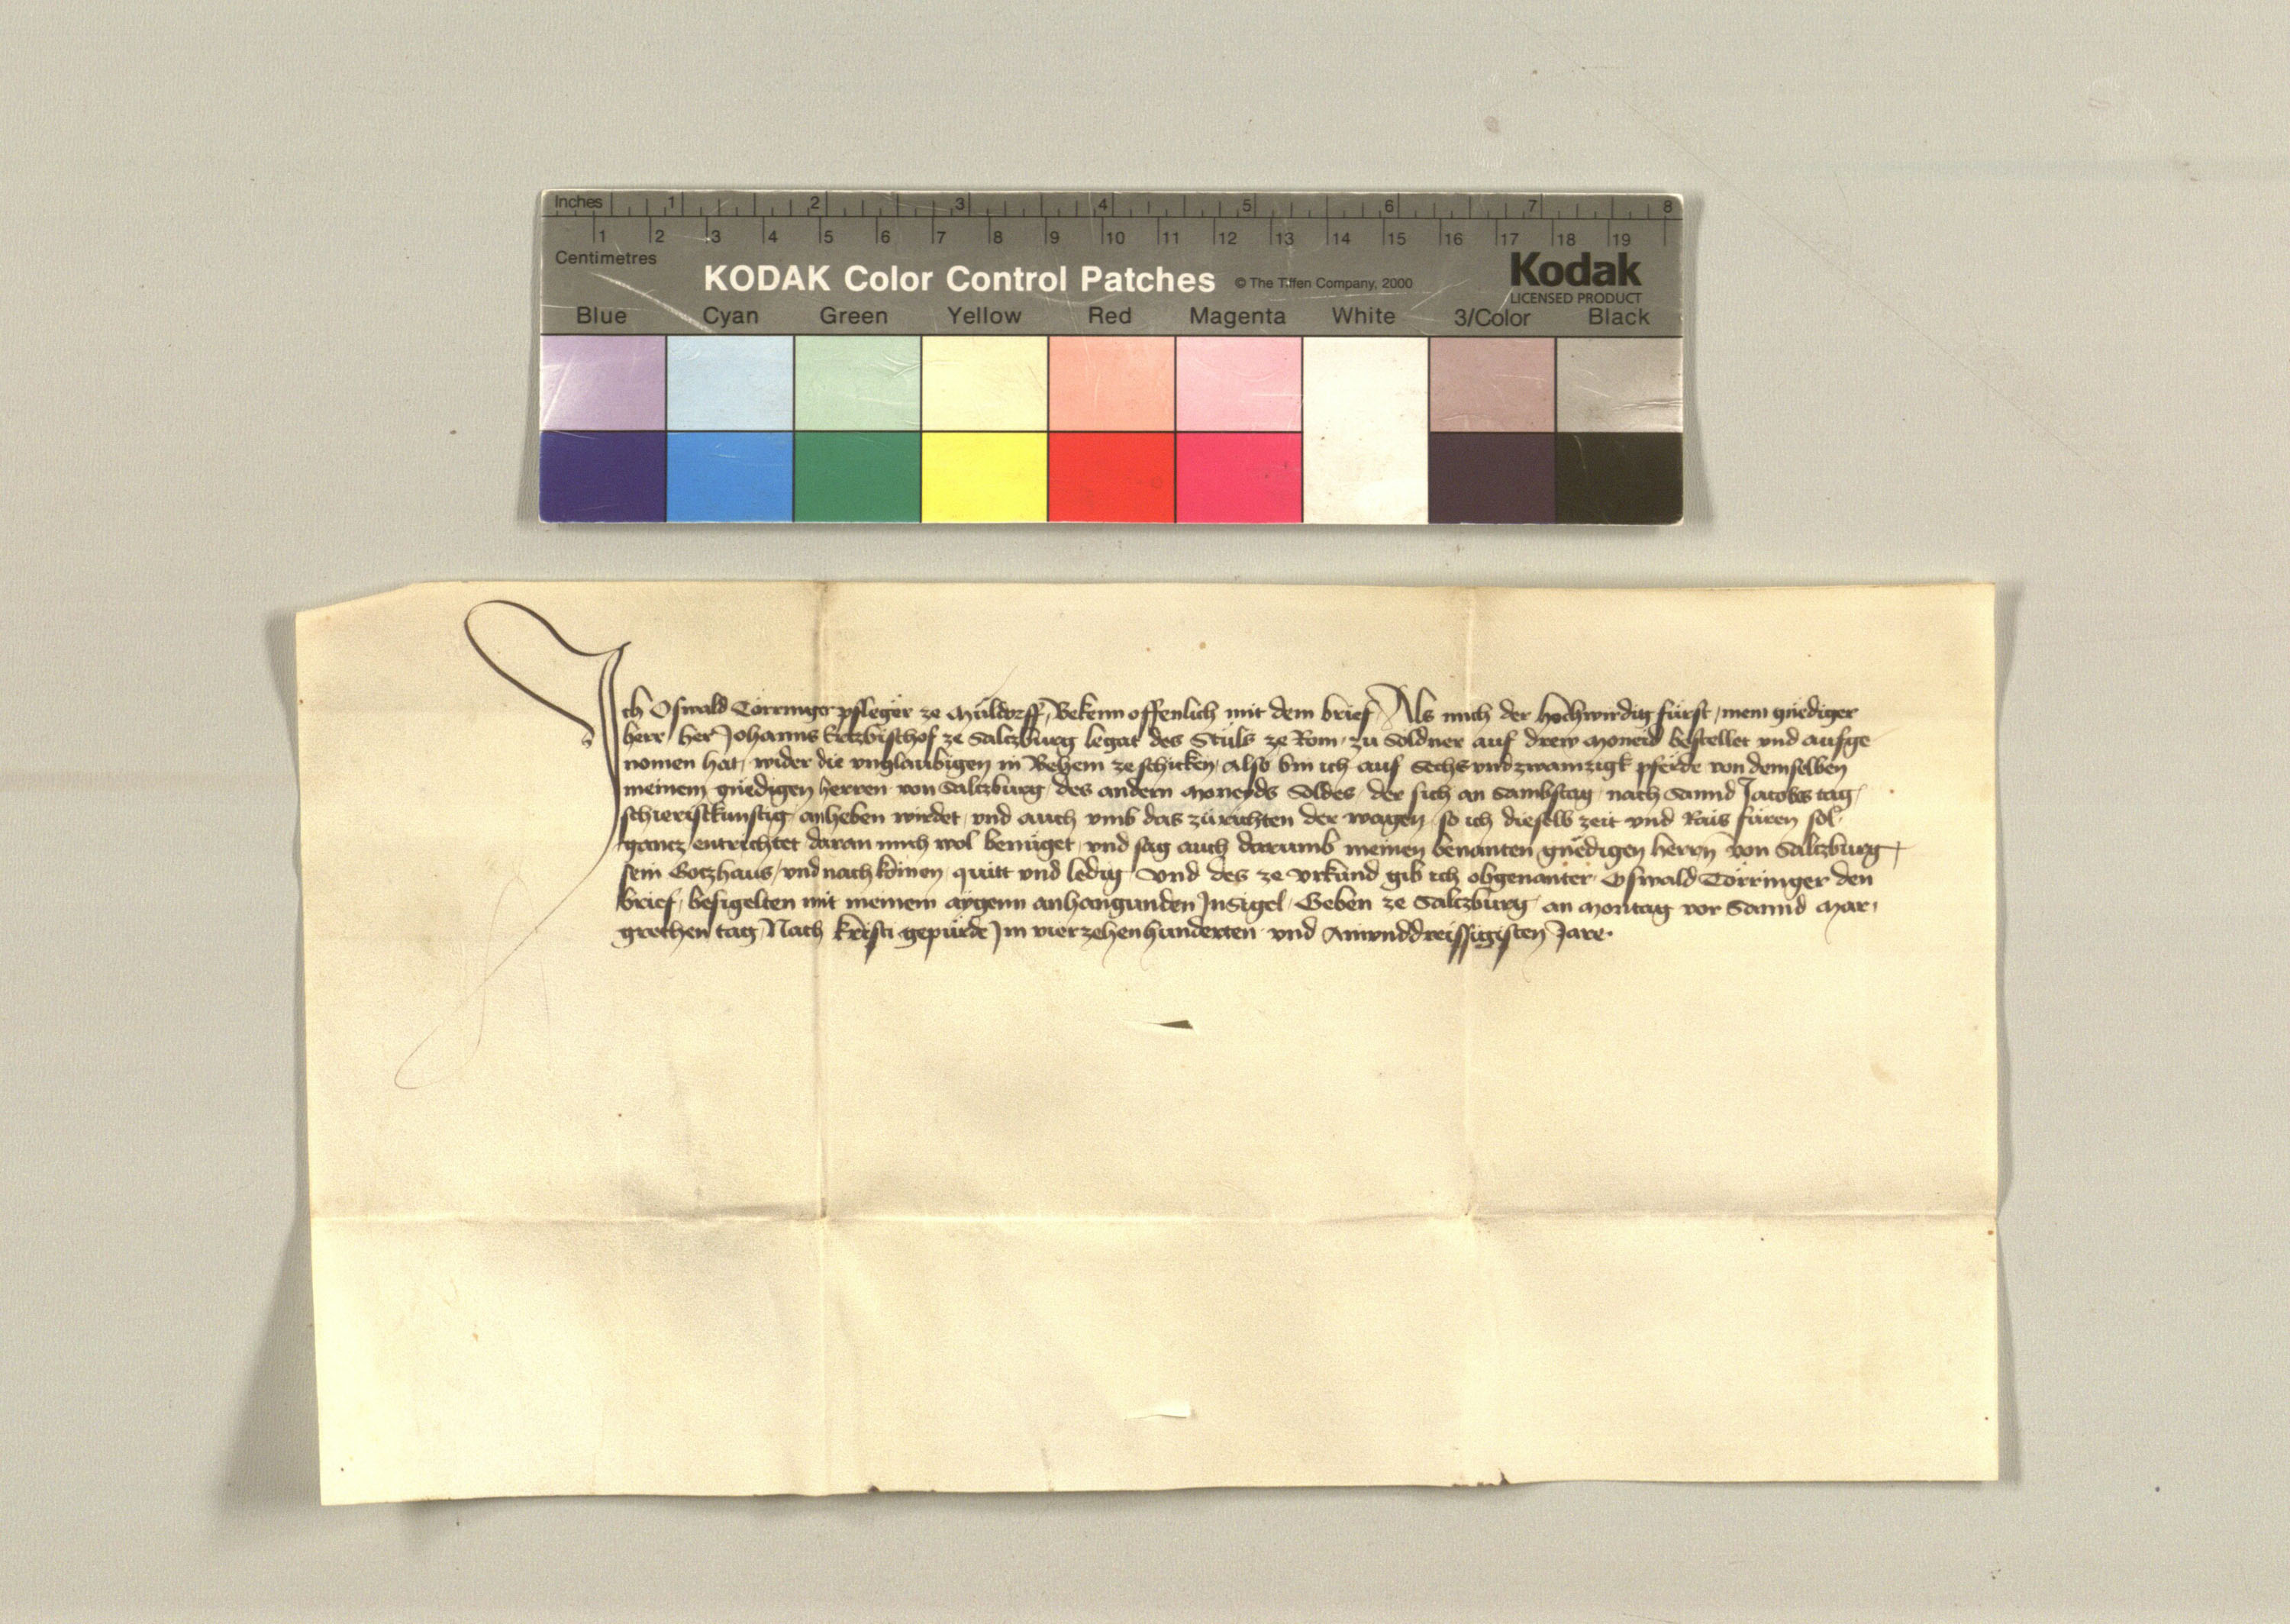 Inches 1 2 3 4 5 6 7 8
1 2 3 4 5 6 7 8 9 10 11 12 13 14 15 16 17 18 19
Centimetres
KODAK Color Control Patches © The Tiffen Company, 2000 Kodak
LICENSED PRODUCT
Blue Cyan Green Yellow Red Magenta White 3/Color Black
Ich Oswald Törringer pfleger ze Müldorff, Bekenn offenlich mit dem brief, Als mich der hochwirdig fürst, mein gnediger
herr, her Johanns Ertzbischof ze Saltzburg legat des Stuls ze Rom, zu Soldner auf drew moneid bestellet vnd aufge
nomen hat, wider die vnglaubigen in Behem ze schicken, Also bin ich auf Sechsvndzwainzigk pferde von demselben
meinem gnedigen herren von Saltzburg, des andern moneyds Soldes, der sich an Sambstag nach Sannd Jacobs tag,
schieristkunftig anheben wirdet, vnd auch vmb das zurichten der wagen, so ich dieselb zeit vnd Rais füren sol,
gantz entrichtet daran mich wol benüget, vnd sag auch darumb meinen benanten gnedigen herrn von Saltzburg,
sein Gotzhaus, vnd nachkomen, quitt vnd ledig Vnd des ze vrkund gib ich obgenanter Oswald Törringer den
brief, besigelten mit meinem aygenn anhangunden Insigel, Geben ze Saltzburg an Montag vor Sannd Mar,
grethen tag, Nach Kristi gepürde Im vierzehenhunderten vnd Ainvnddreissigisten Jare.